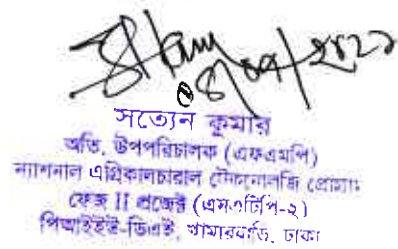 সত্যেন কুমার
অতি. উপপরিচালক (এফএমপি)
ন্যাশনাল এগ্রিকালচারাল টেকনোলজি প্রোগ্রাম
ফেজ II প্রজেক্ট (এনএটিপি-২)
পিআইইউ-ডিএই, খামারবাড়ি, ঢাকা